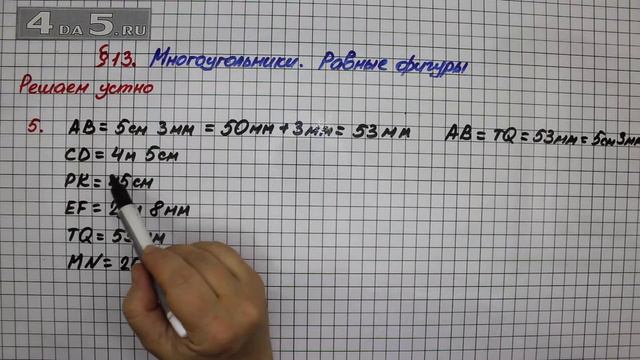 4 DA 5.RU
§13. Многоугольники. Равные фигуры
Решаем устно
5. AB = 5см 3мм = 50мм + 3мм = 53мм AB = TQ = 53мм = 5см 3мм
CD = 4м 5см
PK = 5см
EF = 8мм
TQ =
MN =